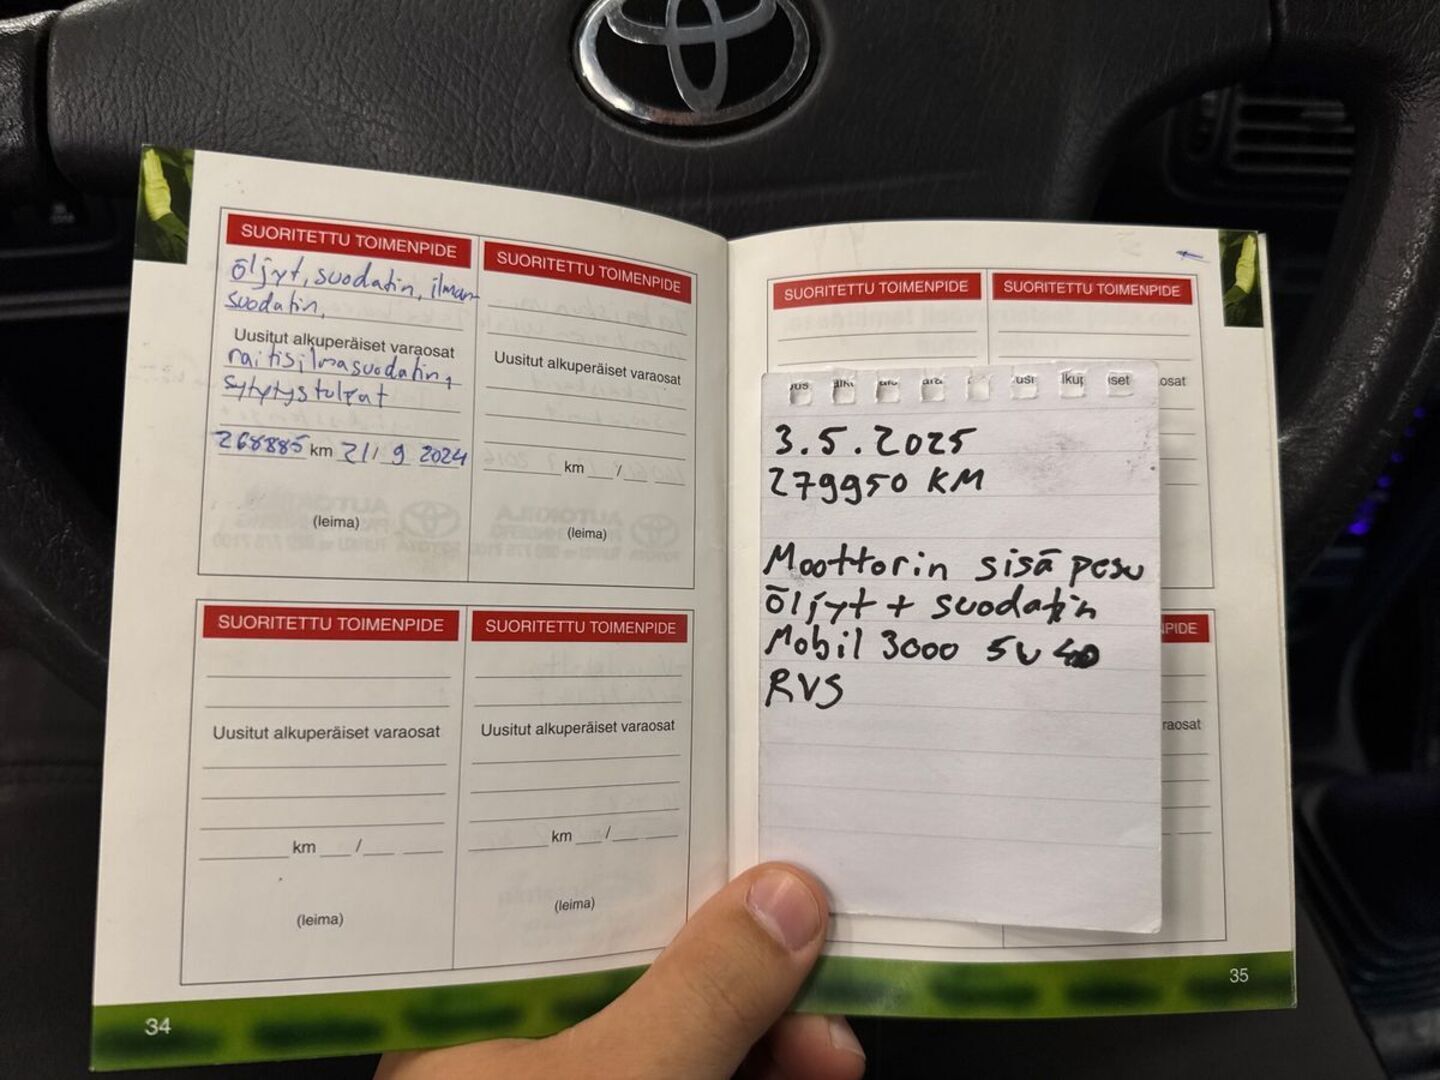 SUORITETTU TOIMENPIDE
öljyt, suodatin, ilman-
suodatin,
Uusitut alkuperäiset varaosat
raitisilmasuodatin,
sytytystulpat
268885 km 21/9 2024
(leima)
SUORITETTU TOIMENPIDE
Uusitut alkuperäiset varaosat
km /
(leima)
SUORITETTU TOIMENPIDE
Uusitut alkuperäiset varaosat
km /
(leima)
SUORITETTU TOIMENPIDE
Uusitut alkuperäiset varaosat
km /
(leima)
34
SUORITETTU TOIMENPIDE
SUORITETTU TOIMENPIDE
osat
3.5.2025
279950 KM
Moottorin sisä pesu
öljyt + suodatin
Mobil 3000 5w40
RVS
PIDE
raosat
35